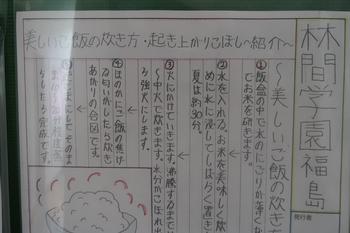 美しいご飯の炊き方・起き上がりこぼし〜紹介〜
林間学園福島
〜美しいご飯の炊き方
発行者
①飯盒の中で水のにごりが薄くな
でお米を研ぎます。
②水を入れる。お米を美味しく炊
めに水に浸ししばらく置き
夏は約30分。
③火にかけていきます。沸騰するまで
〜中火で炊きます。水分がこぼれ出
ら強火にします。
④ほのかにご飯の焦げ
る匂いがしたら炊き
あがりの合図です。
したら完成です。